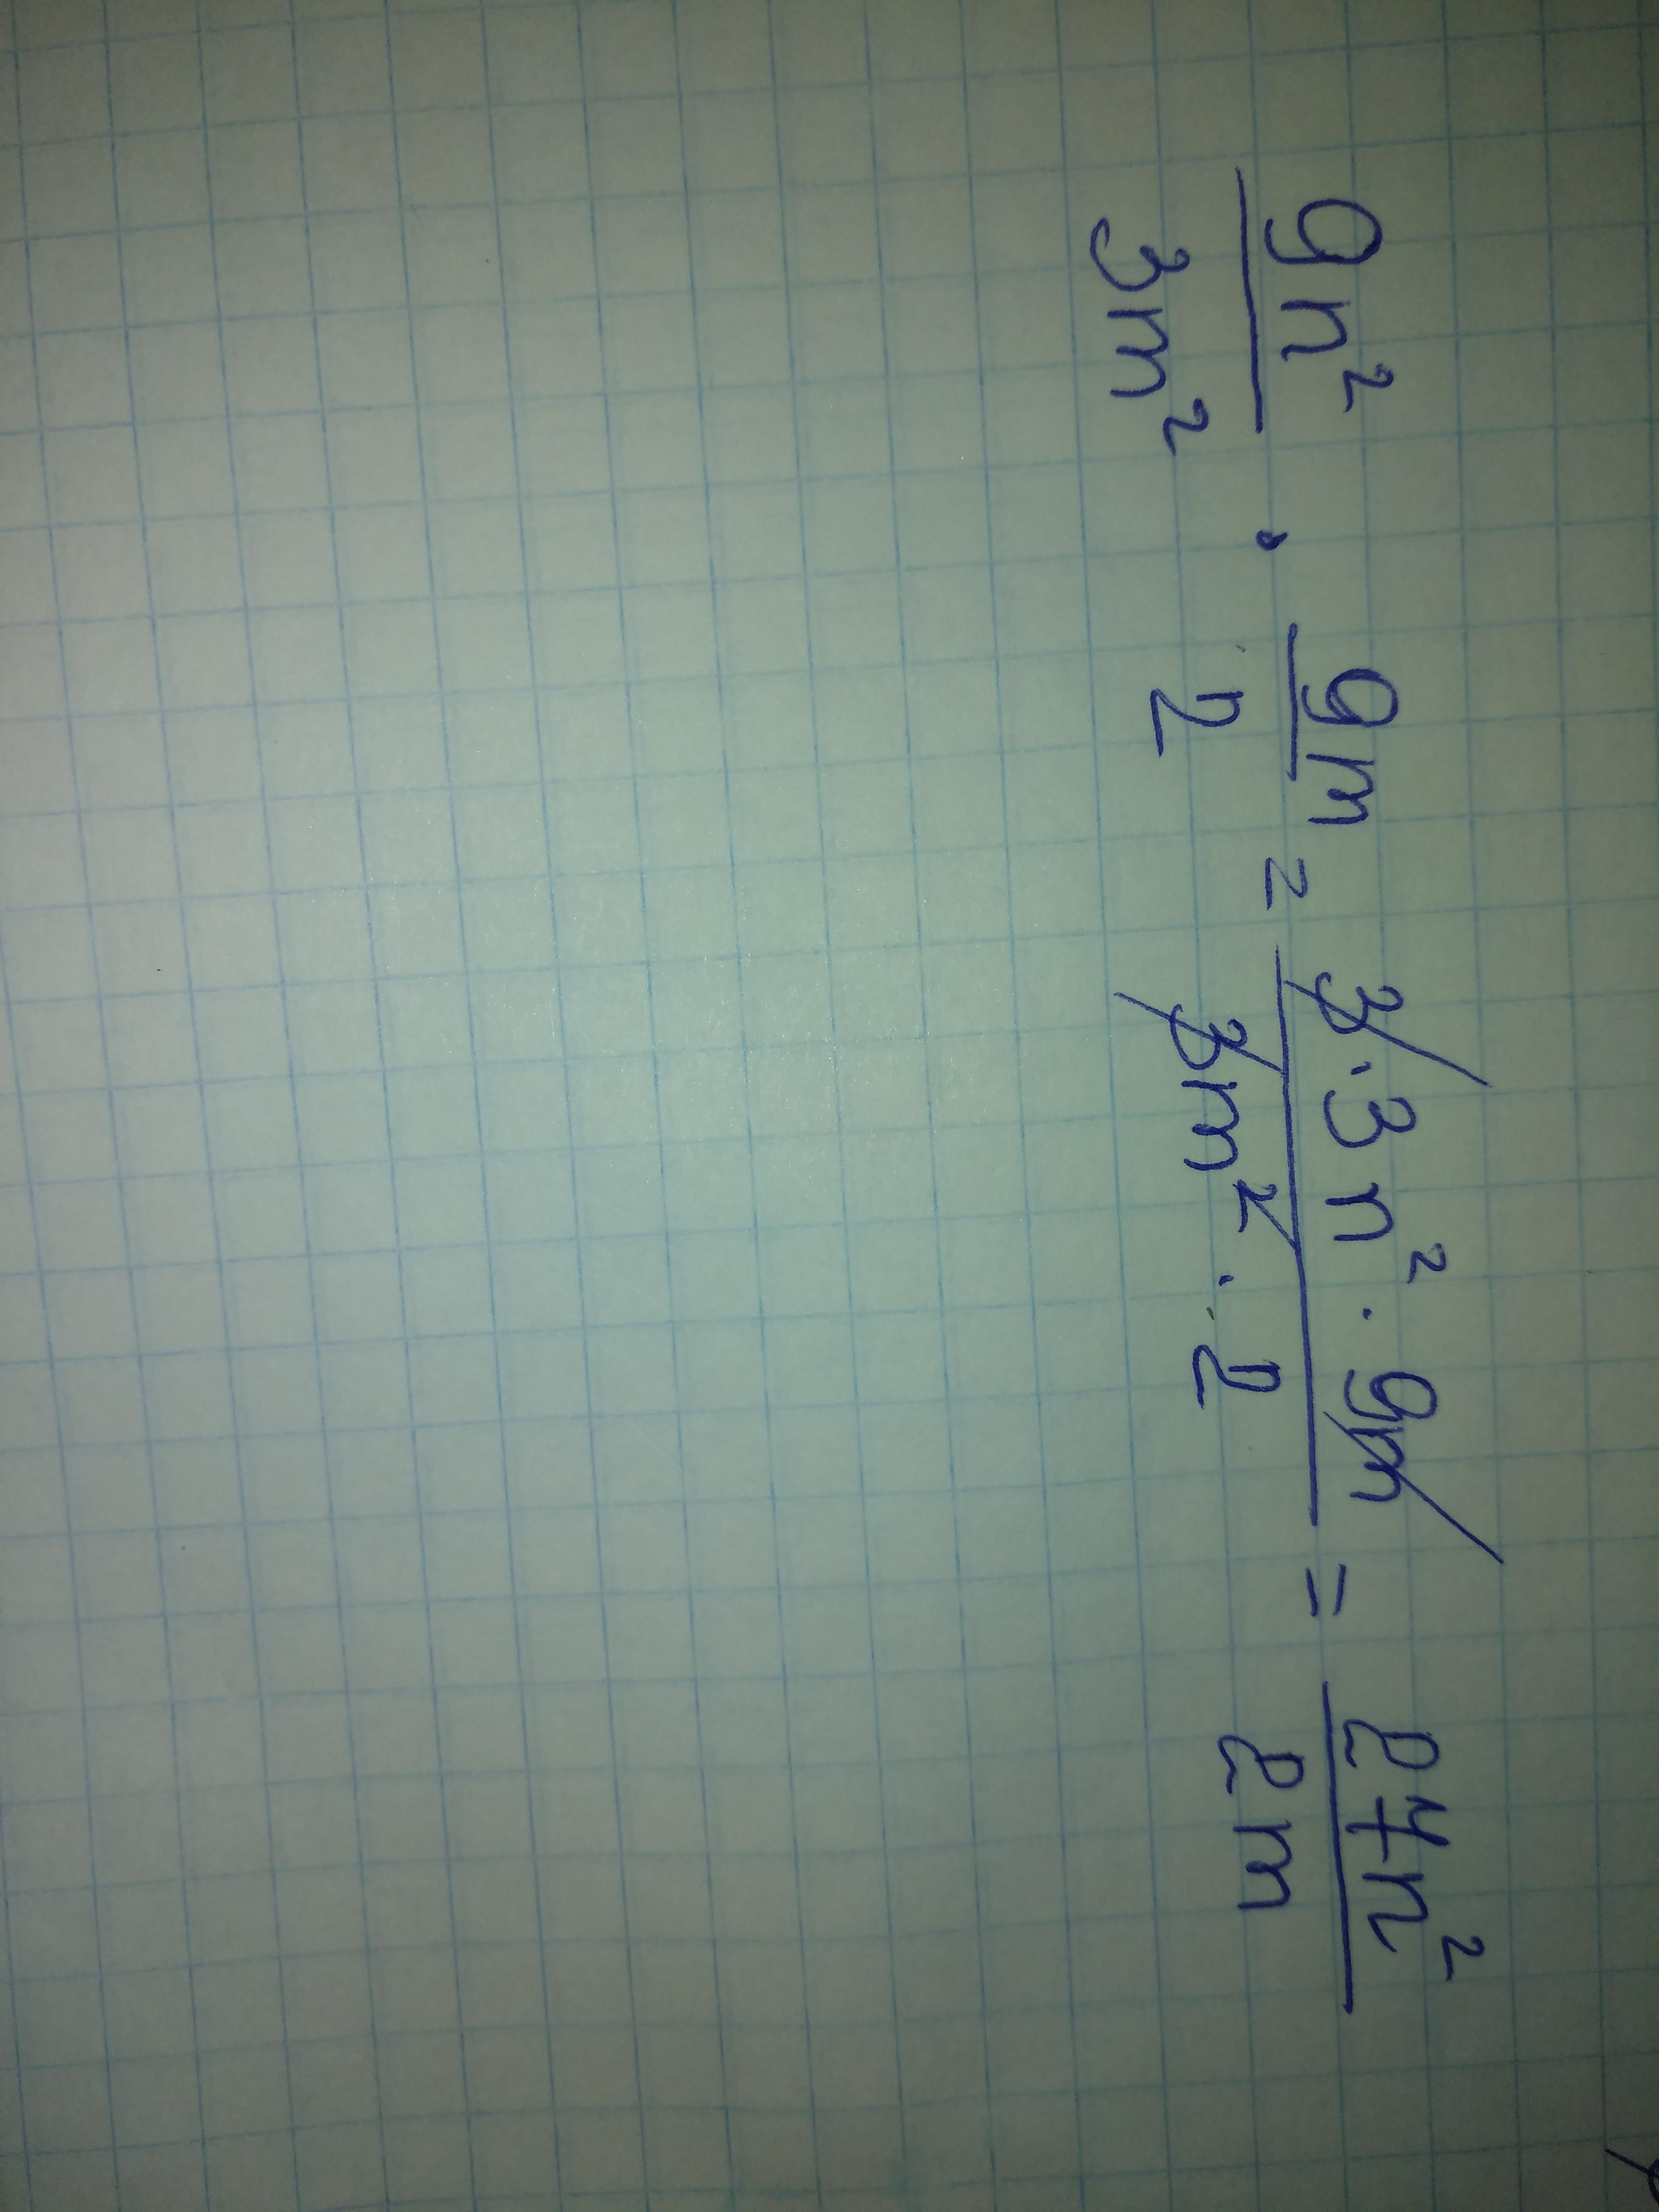 9n²/3m² · 9m/2 = 3·3n²·9m/3m²·2 = 27n²/2m